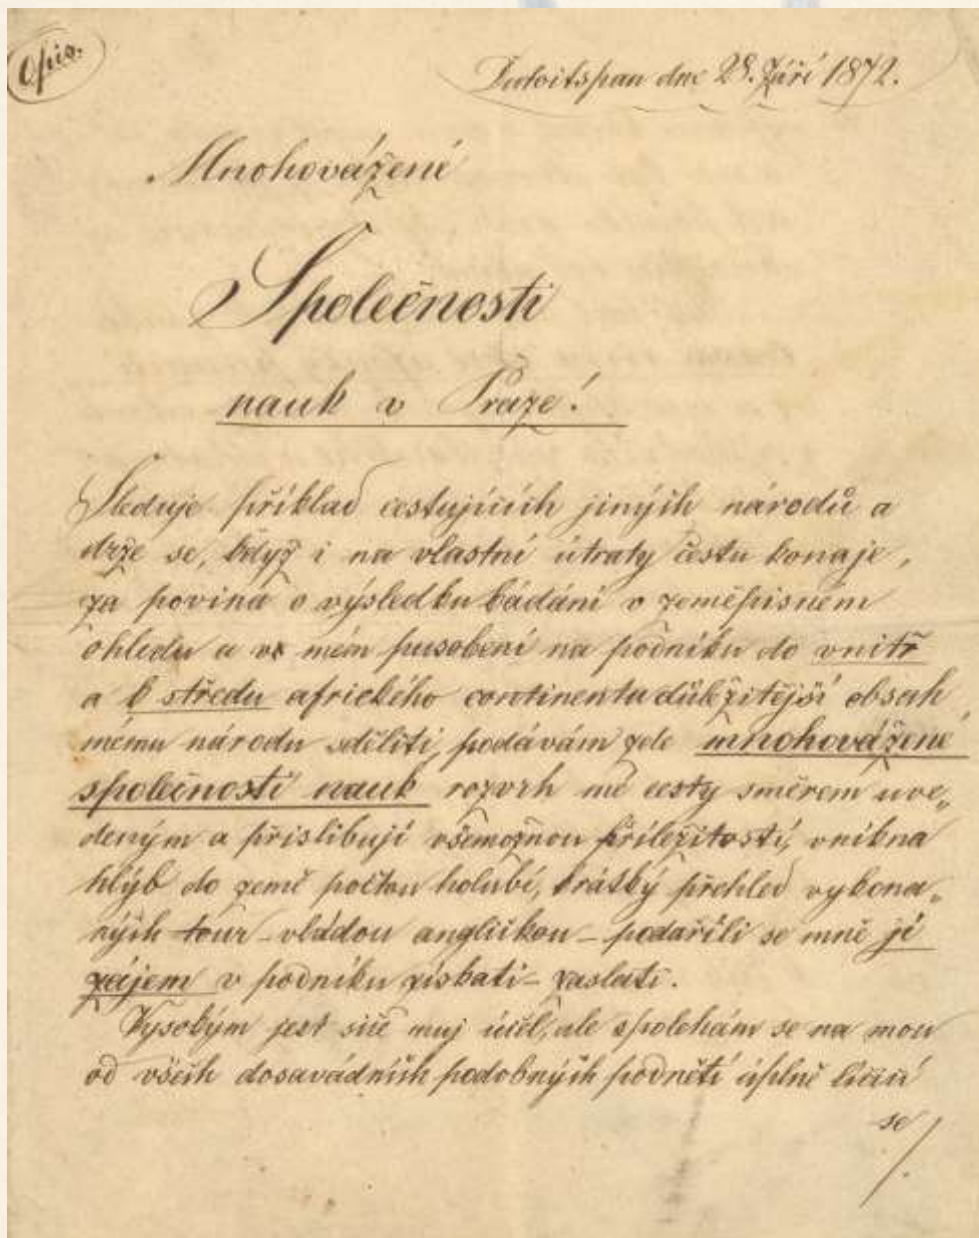 Opis.
Dutoitspan dne 28. Září 1872.
Mnohovážené
Společnosti
nauk v Praze!
Sleduje příklad cestujících jiných národů a
drže se, když i na vlastní útraty cestu konaje,
za povina o výsledku bádání v zeměpisném
ohledu a ve mém pusobení na podniku do vnitř
a k středu afrického continentu důležitější obsah
mému národu sděliti, podávám zde mnohovážené
společnosti nauk rozvrh mé cesty směrem uve„
deným a přislibuji všemožnou příležitostí, vnikna
hlýb do země poštou holubí, krátký přehled vykona„
ných tour – vládou anglickou – podaříli se mně jí
zájem v podniku získati – zaslati.
Vysokým jest sice muj účel, ale spolehám se na mou
od všech dosavádních podobných podnětí úplně lišící
se/.